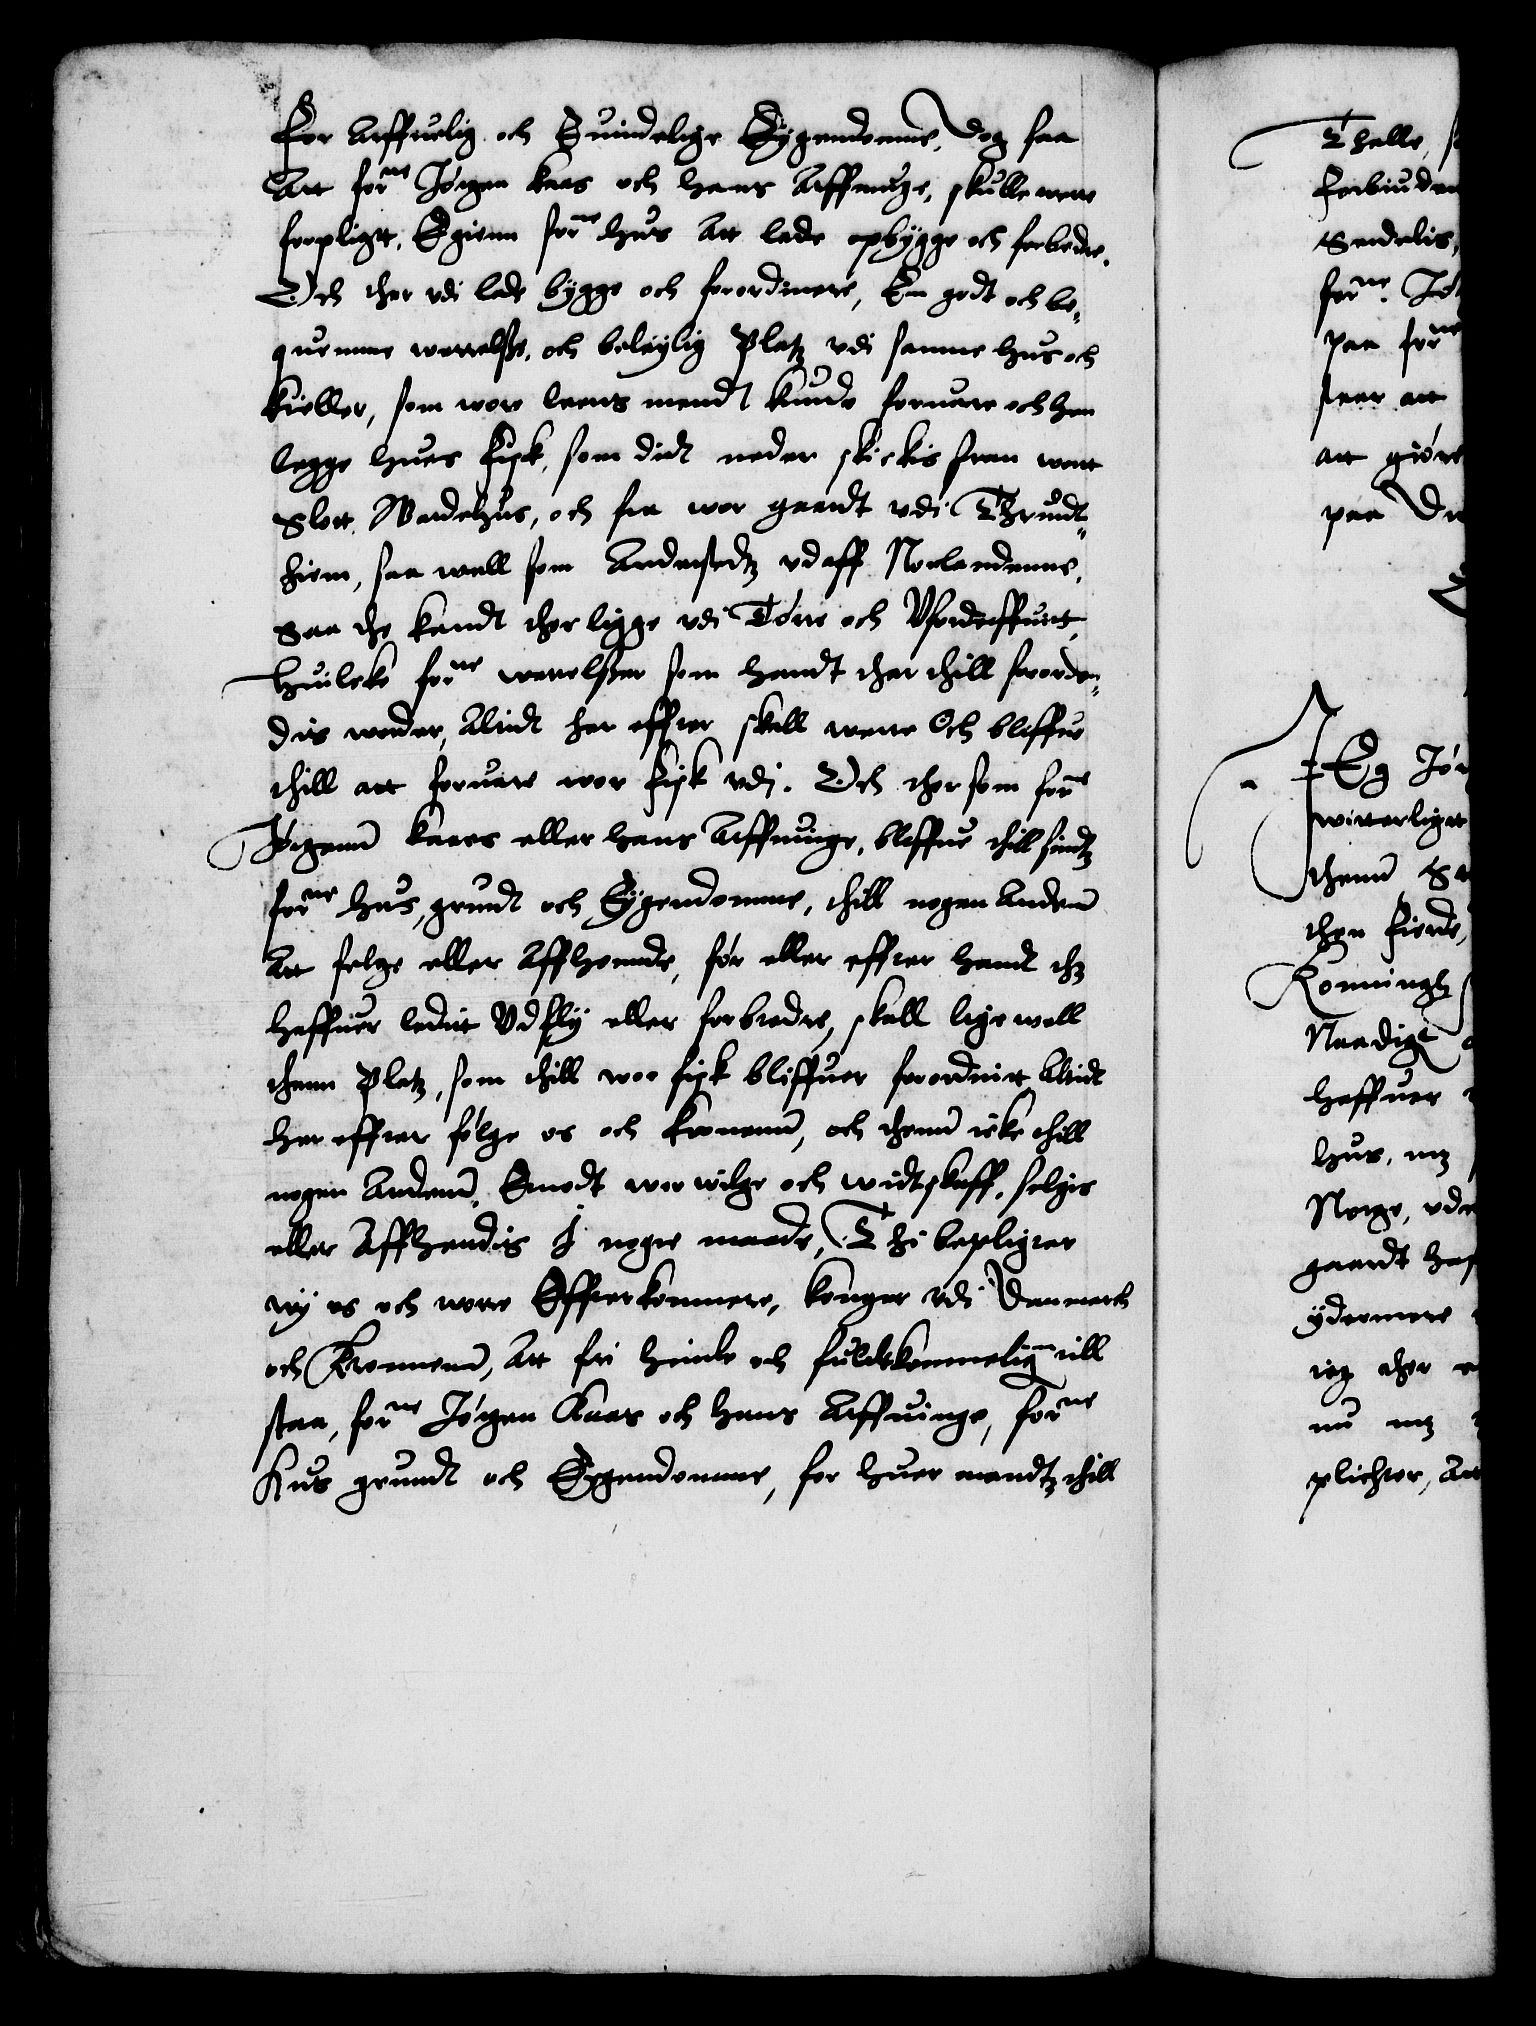 For Arffuelig och Euindelige Eÿgendomme, dog saa
Att forne Jørgen Kaas och hans Arffuinge, skulle were
forpligtt, Egienn forne hus Att lade opbygge och forbedre.
Och ther vdi lade bygge och forordinere, En godt och be-
quemme werrelsse, och beleylig Platz vdi samme hus och
Kieller, som wore leens mendt kunde foruare och hen
legge hues Fisk, som didt neder skickis fran wort
Slott Wardehus, och fra wor gaardt vdi Thrundt-
hiem, saa well som Anderstedtz vdaff Norlandenns,
Saa the kandt ther ligge vdi Tørre och Vforderffuit,
Huilcke forne werrelsser som handt ther thill forordn-
dis worder, Altidt her effter skall were Och bliffue
thill att foruare wor Fisk vdj. Och ther som forne
Jørgenn Kaaes eller hans Arffuinge, bliffue thill sindtz
forne hus, grundt och Eÿgendomme, thill nogen Andenn
Att selge eller Affhende, før eller effter handt thz
haffuer ladit Vdfly eller forbedre, skall lige well
thenn Platz, som thill wor fisk bliffuer forordnitt Altidt
her effter følge os och Kronenn, och thenn icke thill
nogen Andenn, Emodt wor wilge och widtskaff, selgis
eller Affhendis J nogre maade, Thi bepligter
wÿ os och wore Effterkommere, konger vdi Danmarck
och Kronnenn, Att fri heimle och fuldtkommelig till
staa, forne Jørgen Kaas och hans Arffuinge, forne
Hus grundt och Eygendomme, for huer mandtz thill
Thalle, s
Forbiuden
Serdelis,
forne. Jø
paa forne
seer att
att giøre
paa Dr
JEg Jør
witterligtt
thenn Sa
then Fierde,
Konningh
Naadigt
haffuer
hus, mz
Norge, vd
gaardt haf
ÿdermere
ieg ther
nu mz
plichter, Att